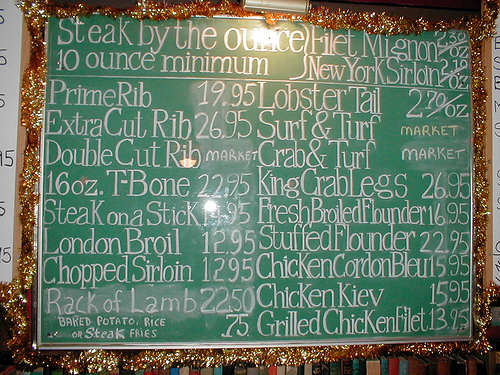 Steak by the ounce/Filet Mignon 2.30/oz
10 ounce minimum New York Sirloin 2.10/oz
Prime Rib 19.95
Extra Cut Rib 26.95
Double Cut Rib MARKET
16oz. T-Bone 22.95
Steak on a Stick 14.95
London Broil 12.95
Chopped Sirloin 12.95
Rack of Lamb 22.50
BAKED POTATO, RICE
OR Steak FRIES .75
Lobster Tail 2.70/oz
Surf & Turf MARKET
Crab & Turf MARKET
King Crab Legs 26.95
Fresh Broiled Flounder 16.95
Stuffed Flounder 22.95
Chicken Cordon Bleu 15.95
Chicken Kiev 15.95
Grilled Chicken Filet 13.95